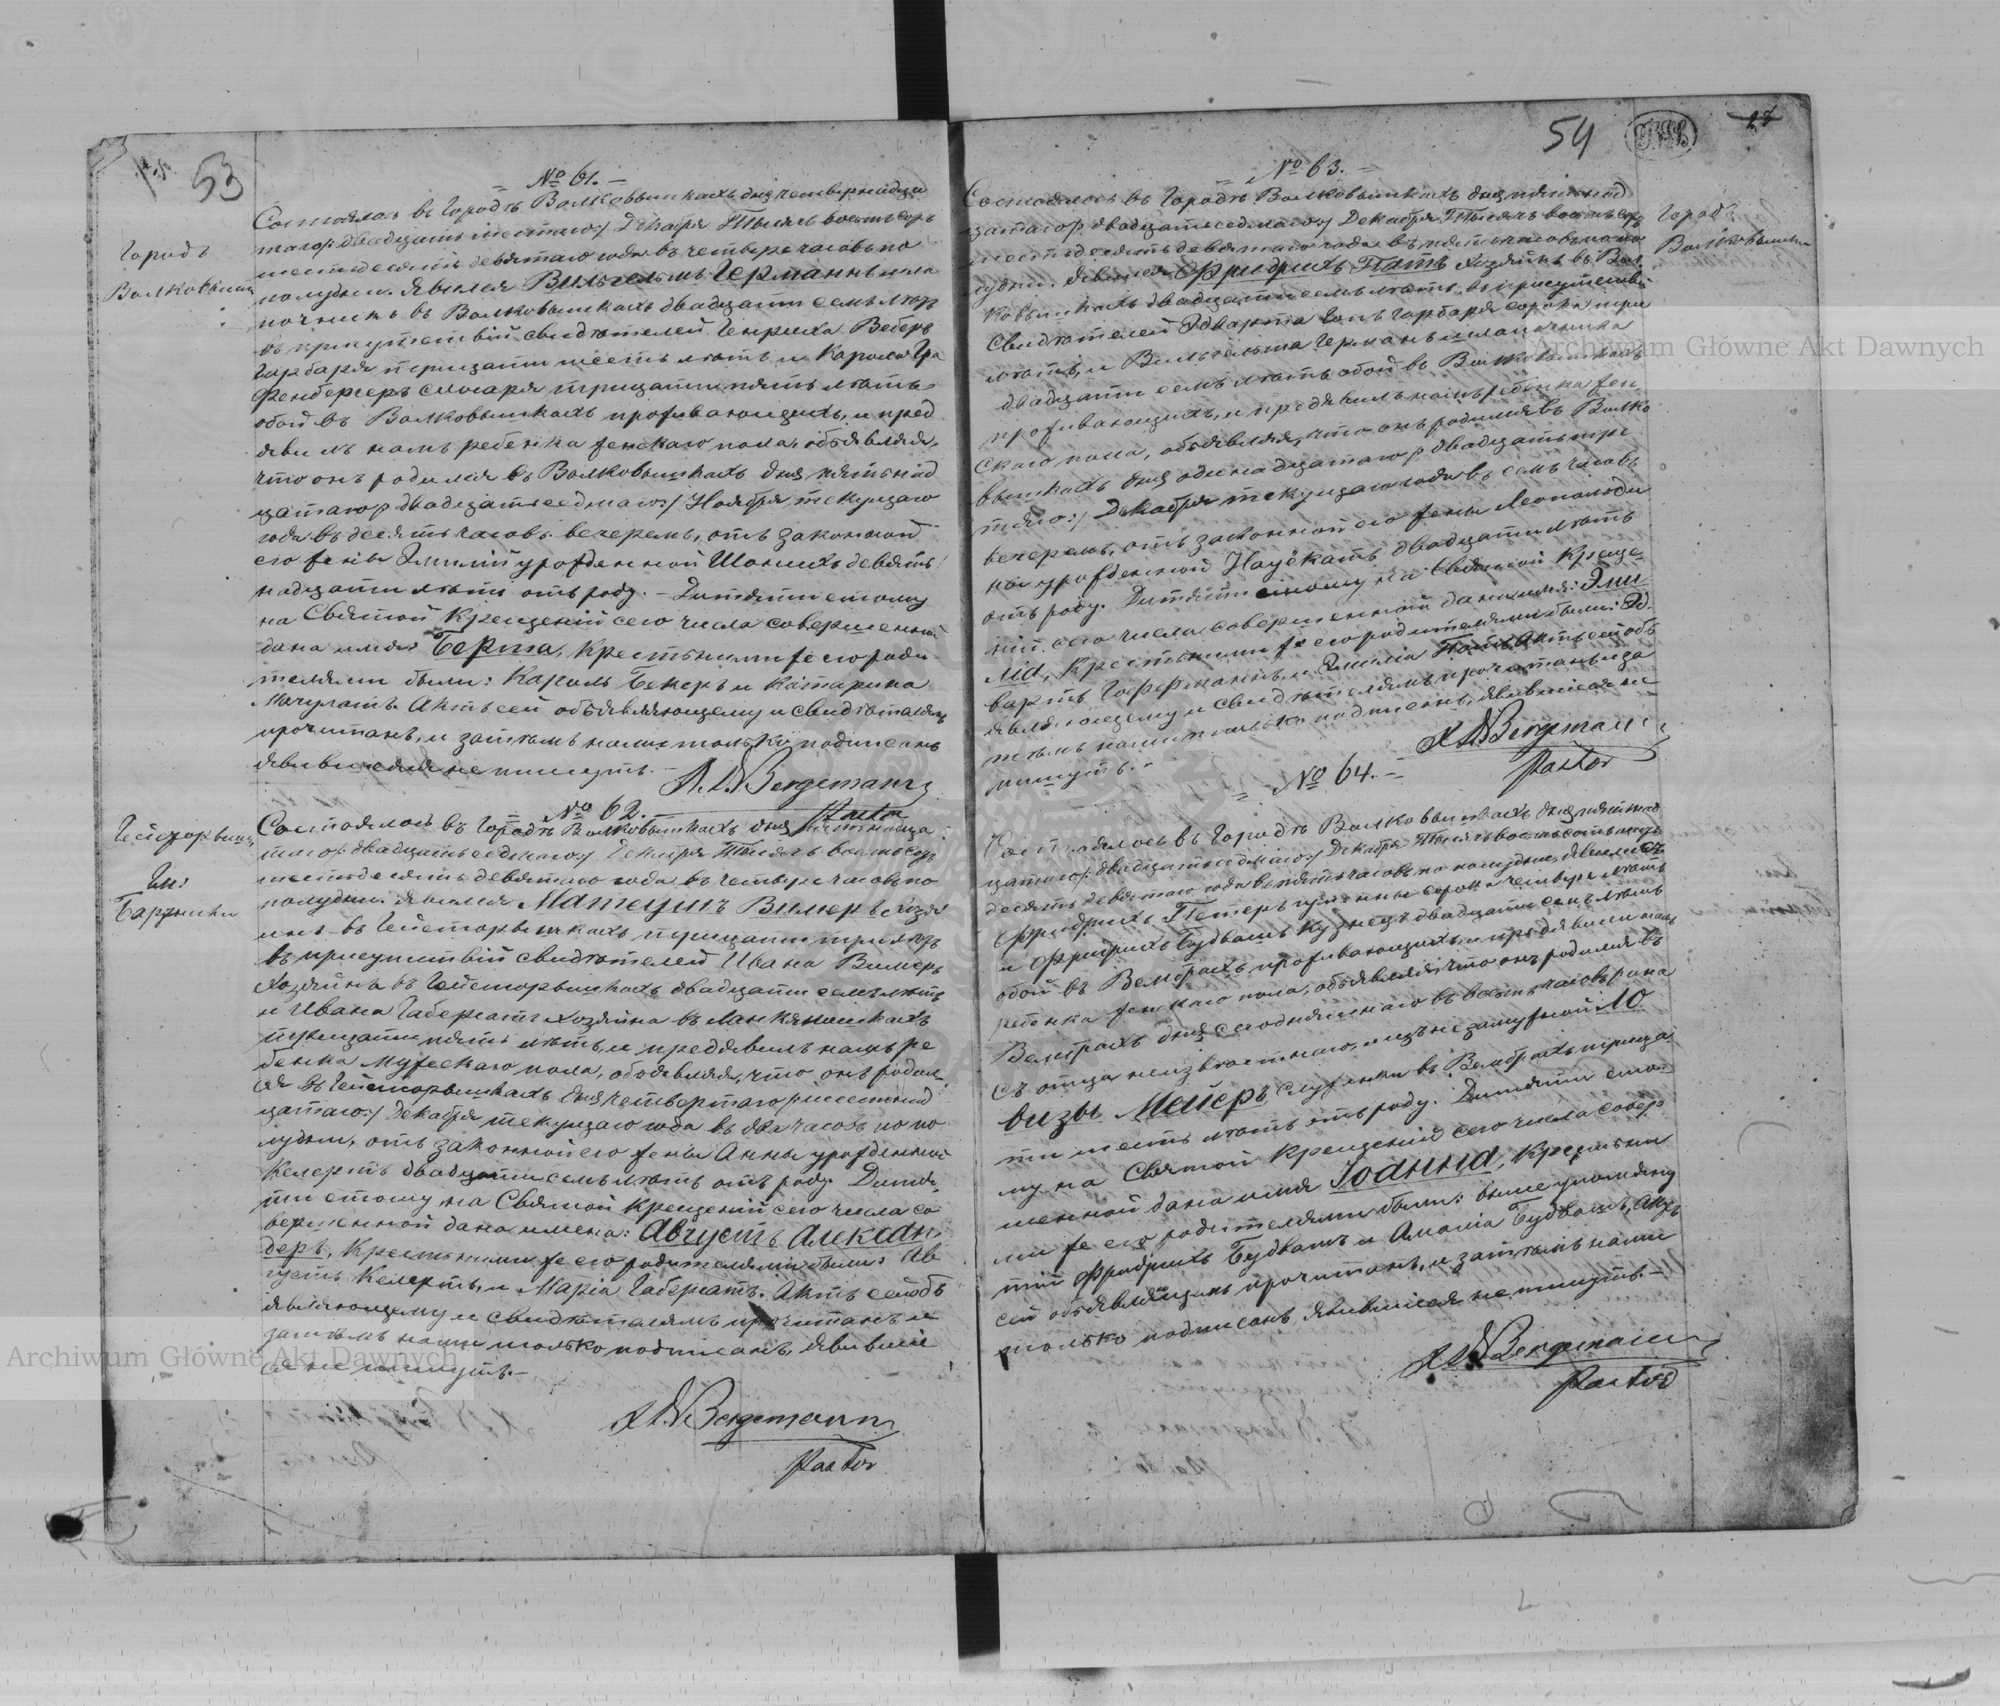 53
№ 61.
Городъ
Волковышки
Состоялось въ Городѣ Волковышкахъ дня четырнадца
таго /: двадцать шестаго :/ Декабря Тысяча восемьсотъ
шестьдесятъ девятаго года въ четыре часовъ по
полудни. Явился Вильгельмъ Германнъ шла
почникъ въ Волковышкахъ двадцати семь лѣтъ
въ присутствій свидѣтелей Генриха Веберъ
Гарбаря тридцати шесть лѣтъ и Карола Гра
фенбергеръ слюсаря тридцати пять лѣтъ
обой въ Волковышкахъ проживающихъ, и пред
явилъ намъ ребенка женскаго пола, объявляя,
что онъ родился въ Волковышкахъ дня пятьнад
цатаго /: двадцать седмаго :/ Ноября текущаго
года въ десять часовъ вечеромъ, отъ законной
его жены Эмилій урожденной Шонихъ девять
надцати лѣтъ отъ роду. – Дитяти етому
на Святой Крещеній сего числа совершенной
дано имя: Берта, Крестными же его роди
телями были: Кароль Бекеръ и Катарина
Мачулатъ. Актъ сей объявляющему и свидѣтелямъ
прочитанъ, и затѣмъ нами только подписанъ
явившіеся не пишутъ. –
Bergemann
Pastor
№ 62.
Гейсторвишки
Гм:
Бартники
Состоялось въ Городѣ Волковышкахъ дня пятьнадца
таго /: двадцать седмаго :/ Декабря Тысяча восемьсотъ
шестьдесятъ девятаго года въ четыре часовъ по
полудни. Явился Матеушъ Вилмеръ, хозя
инъ въ Гейсторвишкахъ тридцати три лѣтъ
въ присутствій свидѣтелей Ивана Вилмеръ
хозяина въ Гейсторвишкахъ двадцати семь лѣтъ
и Ивана Габерлатъ хозяина въ
тридцати пять лѣтъ, и предявилъ намъ ре
бенка мужескаго пола, объявляя, что онъ родил
ся въ Гейсторвишкахъ дня четвертаго / шестнад
цатаго :/ Декабря текущаго года въ два часовъ по по
лудни, отъ законной его жены Анны урожденной
Келертъ двадцати семь лѣтъ отъ роду. Дитя
ти етому на Святой Крещеній сего числа со
вершенной дано имена: Августъ Алексан
деръ, Крестными же его родителями были: Ав
густъ Келертъ, и Марія Габерлатъ. Актъ сей объ
являющему и свидѣтелямъ прочитанъ и
затѣмъ нами только подписанъ, явившіе
ся не пишутъ. –
Bergemann
Pastor
54
№ 63.
Городъ
Волковышки
Состоялось въ Городѣ Волковышкахъ дня пятьнад
цатаго /: двадцать седмаго :/ Декабря Тысяча восемьсотъ
шестьдесятъ девятаго года въ пять часовъ по по
лудни. Явился Фридрихъ Патъ хозяинъ въ Вол
ковышкахъ двадцати семь лѣтъ, въ присутствій
свидѣтелей Эдварта Гопъ гарбаря сорока три
лѣтъ, и Вильгельма Германъ шлапочника
двадцати семь лѣтъ обой въ Волковышкахъ
проживающихъ, и предявилъ намъ ребенка жен
скаго пола, объявляя, что онъ родился въ Волко
вышкахъ дня одинадцатаго / двадцать тре
тяго :/ Декабря текущаго года въ семь часовъ
вечеромъ, отъ законной его жены Леопольди
ной урожденной Наускатъ двадцати лѣтъ
отъ роду. Дитяти етому на Святой Креще
ній сего числа совершенной дано имя: Эми
лія, Крестными же его родителями были: Эд
вартъ Гоферманъ, и Эмилія Патъ. Актъ сей объ
являющему и свидѣтелямъ прочитанъ и за
тѣмъ нами только подписанъ, явившіеся не
пишутъ. –
Bergemann
Pastor
№ 64.
Состоялось въ Городѣ Волковышкахъ дня пятьнад
цатаго /: двадцать седмаго :/ Декабря Тысяча восемьсотъ шесть
десятъ девятаго года въ пять часовъ по полудни, явились
Фридрихъ Петеръ сорока четыре лѣтъ
и Фридрихъ Будвашъ кузнецъ двадцати семь лѣтъ
обой въ Велбрахъ проживающихъ, и предявили намъ
ребенка женскаго пола, объявляя, что онъ родился въ
Велбрахъ дня сегодняшнаго въ восемь часовъ рана
съ отца неизвѣстнаго, и изъ незамужной Ло
визы Мейеръ служанки въ Велбрахъ тридца
ти шесть лѣтъ отъ роду. Дитяти ето
му на Святой Крещеній сего числа совер
шенной дано имя Іоанна, Крестны
ми же его родителями были: выше упомяну
тій Фридрихъ Будвашъ и Амалія Будвашъ, Актъ
сей объявляющимъ прочитанъ, и затѣмъ нами
только подписанъ явившіеся не пишутъ. –
Bergemann
Pastor
Archiwum Główne Akt Dawnych
Archiwum Główne Akt Dawnych